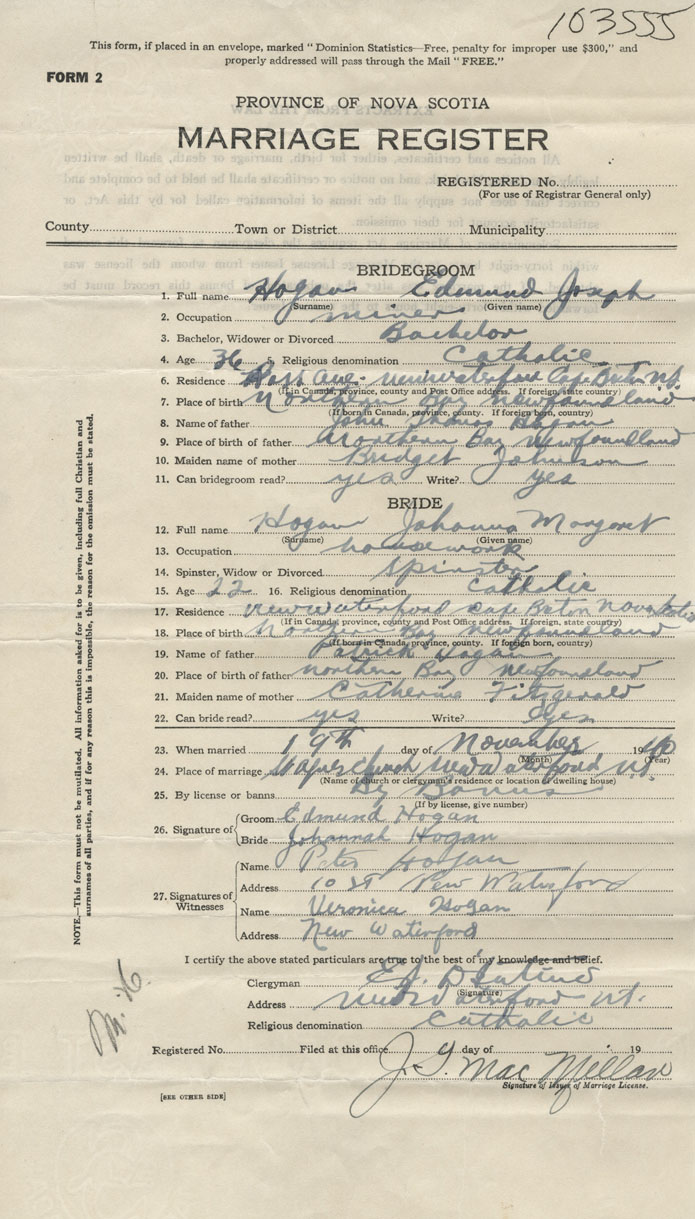 103555
This form, if placed in an envelope, marked "Dominion Statistics—Free, penalty for improper use $300," and
properly addressed will pass through the Mail "FREE."
FORM 2
PROVINCE OF NOVA SCOTIA
MARRIAGE REGISTER
REGISTERED No.
(For use of Registrar General only)
County Town or District Municipality
BRIDEGROOM
1. Full name Hogan Edmund Joseph
(Surname) (Given name)
2. Occupation miner
3. Bachelor, Widower or Divorced Bachelor
4. Age 36 5. Religious denomination Catholic
6. Residence Ave. New Waterford Cape Breton N.S.
(If in Canada, province, county and Post Office address. If foreign, state country)
7. Place of birth Northern Bay Newfoundland
(If born in Canada, province, county. If foreign born, country)
8. Name of father John Thomas Hogan
9. Place of birth of father Northern Bay Newfoundland
10. Maiden name of mother Bridget Johnson
11. Can bridegroom read? yes Write? yes
BRIDE
12. Full name Hogan Johanna Margaret
(Surname) (Given name)
13. Occupation housework
14. Spinster, Widow or Divorced Spinster
15. Age 22 16. Religious denomination Catholic
17. Residence New Waterford Cape Breton Nova Scotia
(If in Canada, province, county and Post Office address. If foreign, state country)
18. Place of birth Northern Bay Newfoundland
(If born in Canada, province, county. If foreign born, country)
19. Name of father Patrick Hogan
20. Place of birth of father Northern Bay Newfoundland
21. Maiden name of mother Catherine Fitzgerald
22. Can bride read? yes Write? yes
23. When married 19th day of November 1940
(Month) (Year)
24. Place of marriage church New Waterford N.S.
(Name of church or clergyman's residence or location of dwelling house)
25. By license or banns By Banns
(If by license, give number)
26. Signature of Groom Edmund Hogan
Bride Johannah Hogan
27. Signatures of Witnesses
Name Peter Hogan
Address 10 St New Waterford
Name Veronica Hogan
Address New Waterford
I certify the above stated particulars are true to the best of my knowledge and belief.
Clergyman
(Signature)
Address New Waterford N.S.
Religious denomination Catholic
Registered No. Filed at this office day of 19
J. G. MacMillan
Signature of Issuer of Marriage License.
[SEE OTHER SIDE]
NOTE.—This form must not be mutilated. All information asked for is to be given, including full Christian and
surnames of all parties, and if for any reason this is impossible, the reason for the omission must be stated.